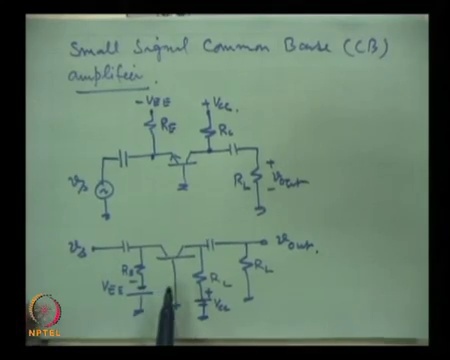 Small Signal Common Base (CB)
amplifier.
-VEE +VCC
RE RL
vs RL + vout -
vs vout.
RE RL RL
VEE - + VCC
NPTEL